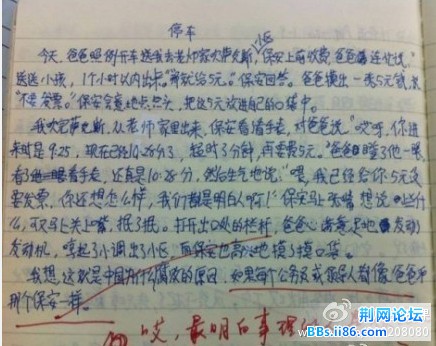 停车
今天,爸爸照例开车送我去老师家吹萨克斯,小区保安上前收费,爸爸连忙说:“
送送小孩,1个小时以内出来。”“那就给5元。”保安回答。爸爸摸出一张5元钱,说
“不要发票。”保安会意地点点头,把这5元放进自己的口袋中。
我吹完萨克斯,从老师家里出来,保安看着手表,对爸爸说:“哎呀,你进
来时是9:25,现在已经10:28分了,超时3分钟,再要费5元。”爸爸瞪了他一眼,
看了他一眼看手表,还真是10:28分,然后生气地说:“喂,我已经给你5元没
要发票,你还想怎么样,我们都是明白人啊!”保安马上张嘴想说些什
么,又马上关上嘴,抿了抿。打开出口处的栏杆,爸爸心满意足地发动
发动机,哼起了小调出了小区,而保安也高兴地摸了摸口袋。
我想,这就是中国为什么腐败的原因,如果每个公务员或领导人都像爸爸和
那个保安一样。
哎,最明白事理
208080
荆网论坛
BBs.ii86.com